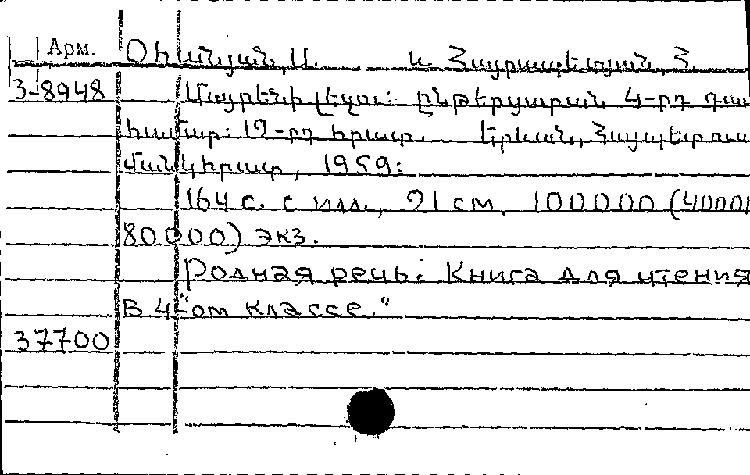 Арм. Օհանյան, Ա. և Հայրապետյան, Հ.
3-8948 Մայրենի լեզու: Ընթերցարան 4-րդ դաս
համար: 19-րդ հրատ. Երևան, Հայպետուս
մանկհրատ, 1959:
164 с. с илл., 21 см, 100000 (40000
80000) экз.
"Родная речь: Книга для чтения
в 4-ом классе."
37700